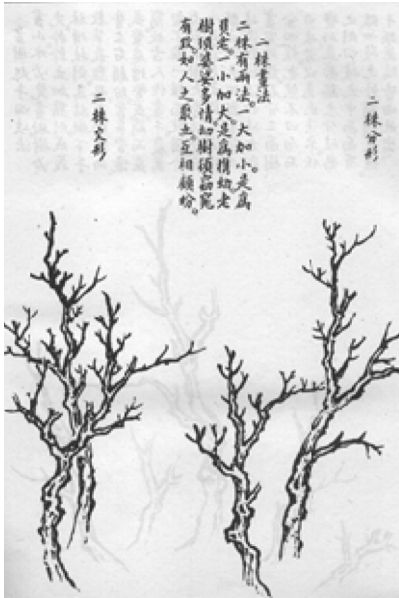 二株分形
二株畫法
二株有兩法。一大加小。是爲
負老。一小加大。是爲攜幼。老
樹須婆娑多情。幼樹須窈窕
有致。如人之聚立。互相顧盼。
二株交形